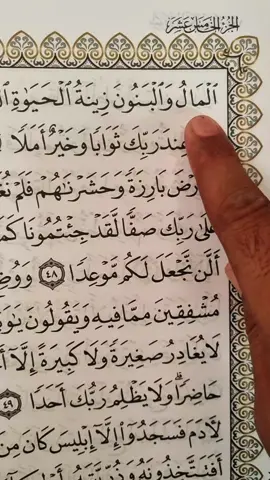 الجزء الخامس عشر
ٱلْمَالُ وَٱلْبَنُونَ زِينَةُ ٱلْحَيَوٰةِ
عِندَ رَبِّكَ ثَوَابًا وَخَيْرٌ أَمَلًا
وَحَشَرْنَٰهُمْ فَلَمْ بَارِزَةً
عَلَىٰ رَبِّكَ صَفًّا لَّقَدْ جِئْتُمُونَا
أَلَّن نَّجْعَلَ لَكُم مَّوْعِدًا ٤٨
مُشْفِقِينَ مِمَّا فِيهِ وَيَقُولُونَ
لَا يُغَادِرُ صَغِيرَةً وَلَا كَبِيرَةً إِلَّآ
حَاضِرًا ۗ وَلَا يَظْلِمُ رَبُّكَ أَحَدًا ٤٩
لِأَدَمَ فَسَجَدُوٓا۟ إِلَّآ إِبْلِيسَ كَانَ مِنَ
أَفَتَتَّخِذُونَهُۥ وَذُرِّيَّتَهُۥٓ